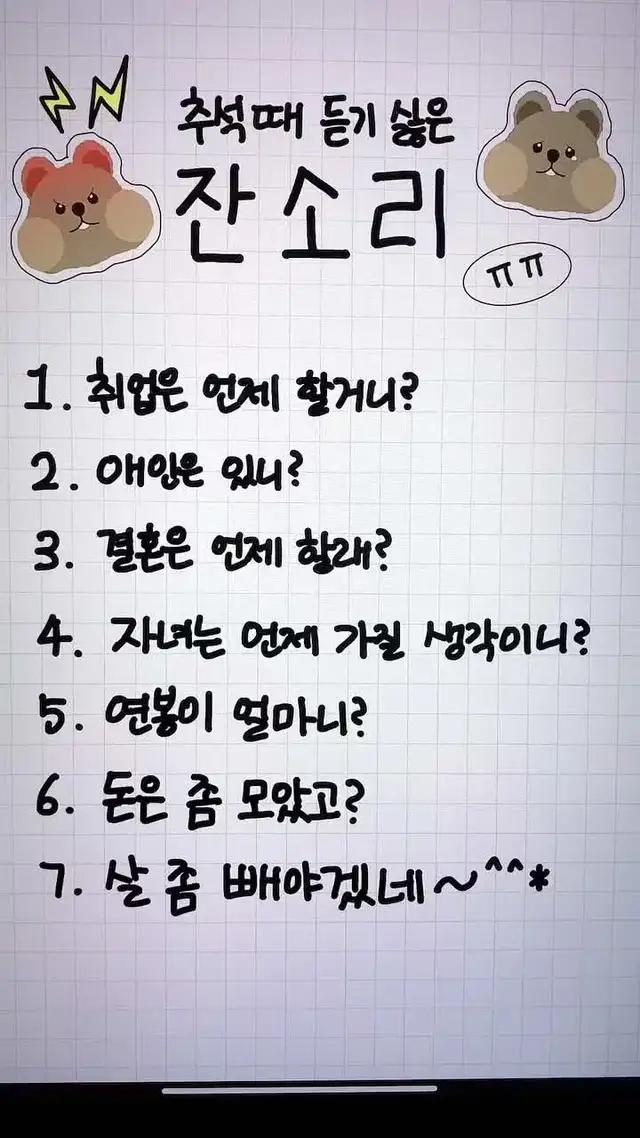 추석때 듣기 싫은
잔소리
ㅠㅠ
1. 취업은 언제 할거니?
2. 애인은 있니?
3. 결혼은 언제 할래?
4. 자녀는 언제 가질 생각이니?
5. 연봉이 얼마니?
6. 돈은 좀 모았고?
7. 살 좀 빼야겠네~^^*